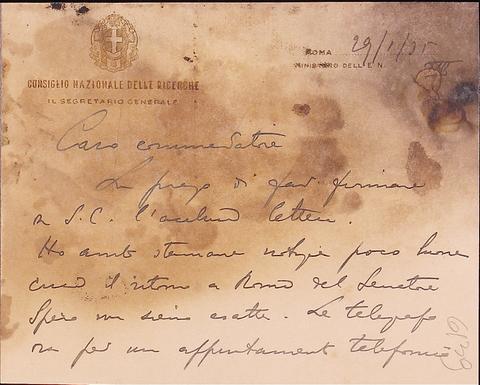 CONSIGLIO NAZIONALE DELLE RICERCHE
IL SEGRETARIO GENERALE
ROMA 29/1/35
MINISTERO DELL'E. N.
Caro commendatore
La prego di far firmare
a S.E. l'acclusa lettera.
Ho avuto stamane notizie poco buone
circa il ritorno a Roma del Senatore
Spero non siano esatte. Le telegrafo
ora per un appuntamento telefonico